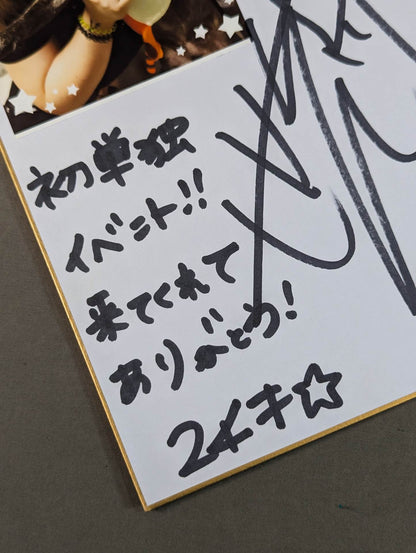 初単独
イベント!!
来てくれて
ありがとう!
2イキ☆